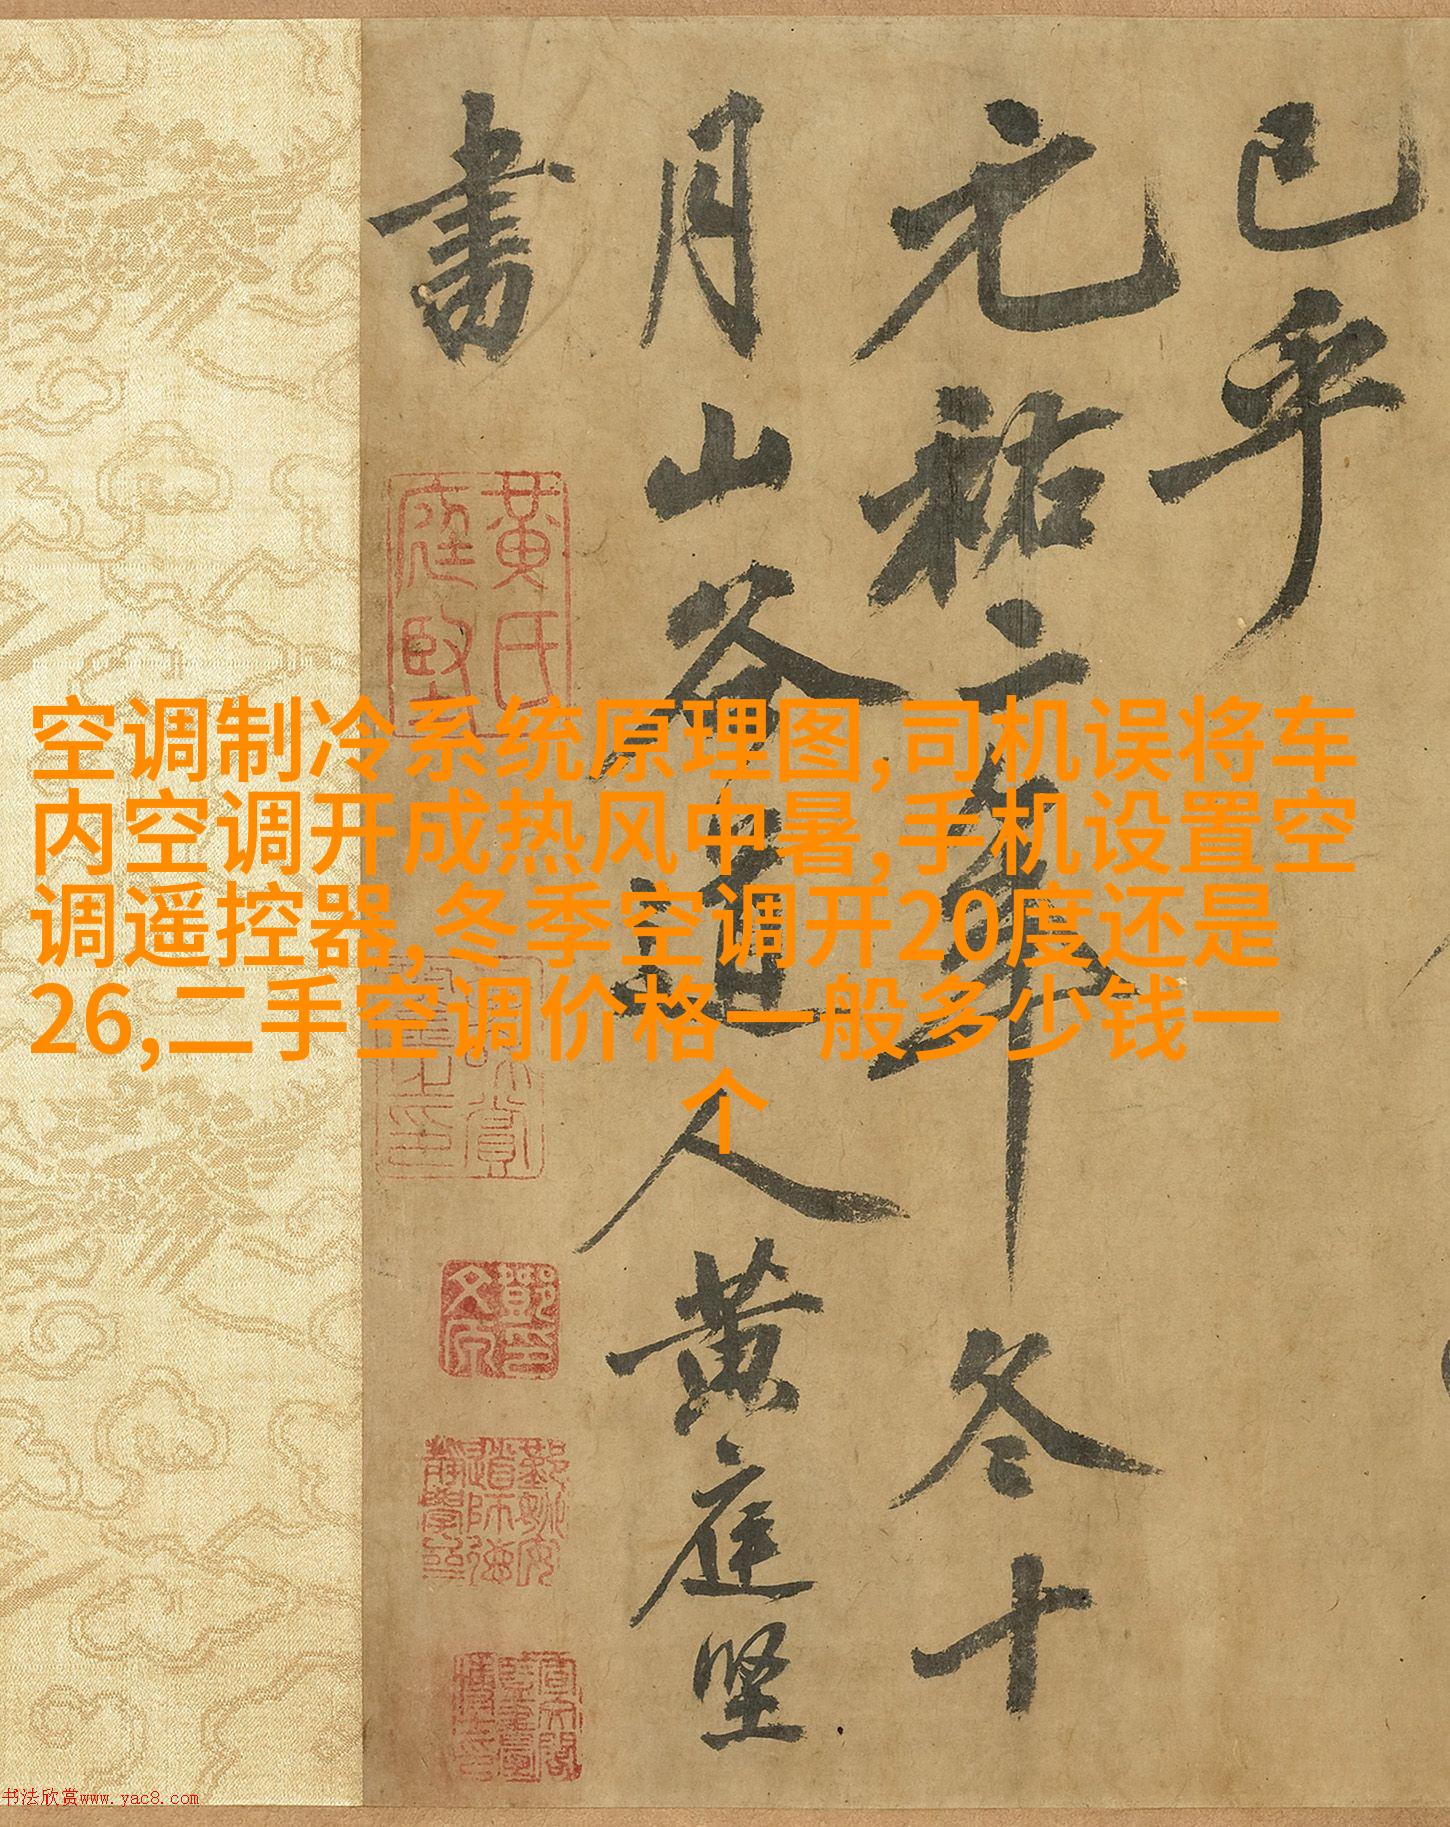 已乎
元祐二年冬十
月山谷道人黄庭坚
書
黄氏
庭堅
空调制冷系统原理图,司机误将车
内空调开成热风中暑,手机设置空
调遥控器,冬季空调开20度还是
26,二手空调价格一般多少钱一
个
书法欣赏www.yac8.com